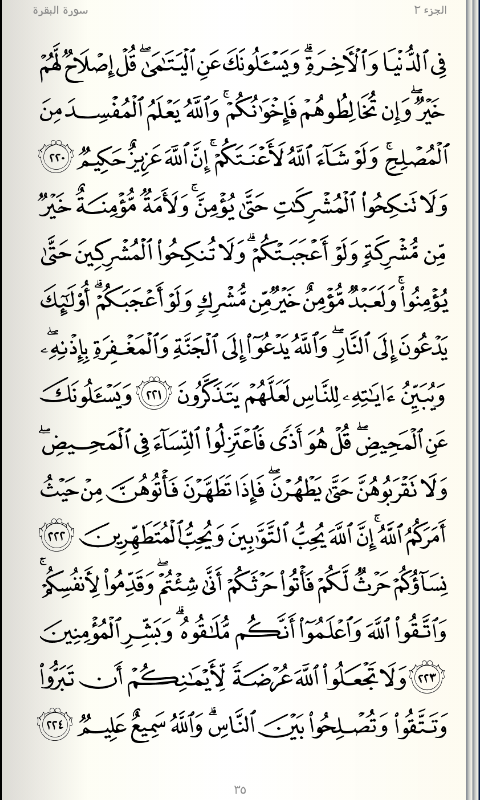 الجزء ٢ سورة البقرة
فِي ٱلدُّنْيَا وَٱلْـَٔاخِرَةِ ۗ وَيَسْـَٔلُونَكَ عَنِ ٱلْيَتَـٰمَىٰ ۖ قُلْ إِصْلَاحٌ لَّهُمْ
خَيْرٌ ۖ وَإِن تُخَالِطُوهُمْ فَإِخْوَٰنُكُمْ ۚ وَٱللَّهُ يَعْلَمُ ٱلْمُفْسِدَ مِنَ
ٱلْمُصْلِحِ ۚ وَلَوْ شَآءَ ٱللَّهُ لَأَعْنَتَكُمْ ۚ إِنَّ ٱللَّهَ عَزِيزٌ حَكِيمٌ ٢٢٠
وَلَا تَنكِحُوا۟ ٱلْمُشْرِكَـٰتِ حَتَّىٰ يُؤْمِنَّ ۚ وَلَأَمَةٌ مُّؤْمِنَةٌ خَيْرٌ
مِّن مُّشْرِكَةٍ وَلَوْ أَعْجَبَتْكُمْ ۗ وَلَا تُنكِحُوا۟ ٱلْمُشْرِكِينَ حَتَّىٰ
يُؤْمِنُوا۟ ۚ وَلَعَبْدٌ مُّؤْمِنٌ خَيْرٌ مِّن مُّشْرِكٍ وَلَوْ أَعْجَبَكُمْ ۗ أُو۟لَـٰٓئِكَ
يَدْعُونَ إِلَى ٱلنَّارِ ۖ وَٱللَّهُ يَدْعُوٓا۟ إِلَى ٱلْجَنَّةِ وَٱلْمَغْفِرَةِ بِإِذْنِهِۦ ۖ
وَيُبَيِّنُ ءَايَـٰتِهِۦ لِلنَّاسِ لَعَلَّهُمْ يَتَذَكَّرُونَ ٢٢١ وَيَسْـَٔلُونَكَ
عَنِ ٱلْمَحِيضِ ۖ قُلْ هُوَ أَذًى فَٱعْتَزِلُوا۟ ٱلنِّسَآءَ فِي ٱلْمَحِيضِ ۖ
وَلَا تَقْرَبُوهُنَّ حَتَّىٰ يَطْهُرْنَ ۖ فَإِذَا تَطَهَّرْنَ فَأْتُوهُنَّ مِنْ حَيْثُ
أَمَرَكُمُ ٱللَّهُ ۚ إِنَّ ٱللَّهَ يُحِبُّ ٱلتَّوَّٰبِينَ وَيُحِبُّ ٱلْمُتَطَهِّرِينَ ٢٢٢
نِسَآؤُكُمْ حَرْثٌ لَّكُمْ فَأْتُوا۟ حَرْثَكُمْ أَنَّىٰ شِئْتُمْ ۖ وَقَدِّمُوا۟ لِأَنفُسِكُمْ ۚ
وَٱتَّقُوا۟ ٱللَّهَ وَٱعْلَمُوٓا۟ أَنَّكُم مُّلَـٰقُوهُ ۗ وَبَشِّرِ ٱلْمُؤْمِنِينَ
٢٢٣ وَلَا تَجْعَلُوا۟ ٱللَّهَ عُرْضَةً لِّأَيْمَـٰنِكُمْ أَن تَبَرُّوا۟
وَتَتَّقُوا۟ وَتُصْلِحُوا۟ بَيْنَ ٱلنَّاسِ ۗ وَٱللَّهُ سَمِيعٌ عَلِيمٌ ٢٢٤
٣٥